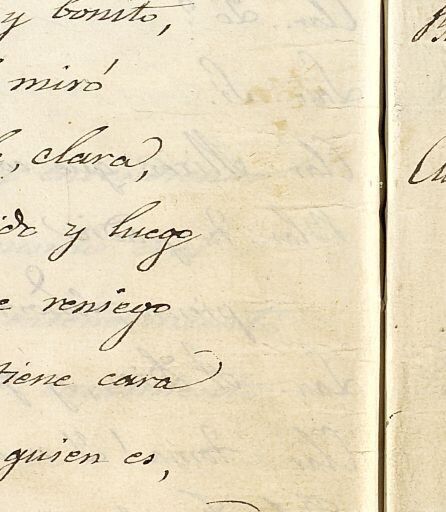 y bonito,
miró
clara,
y luego
reniego
tiene cara
quien es,